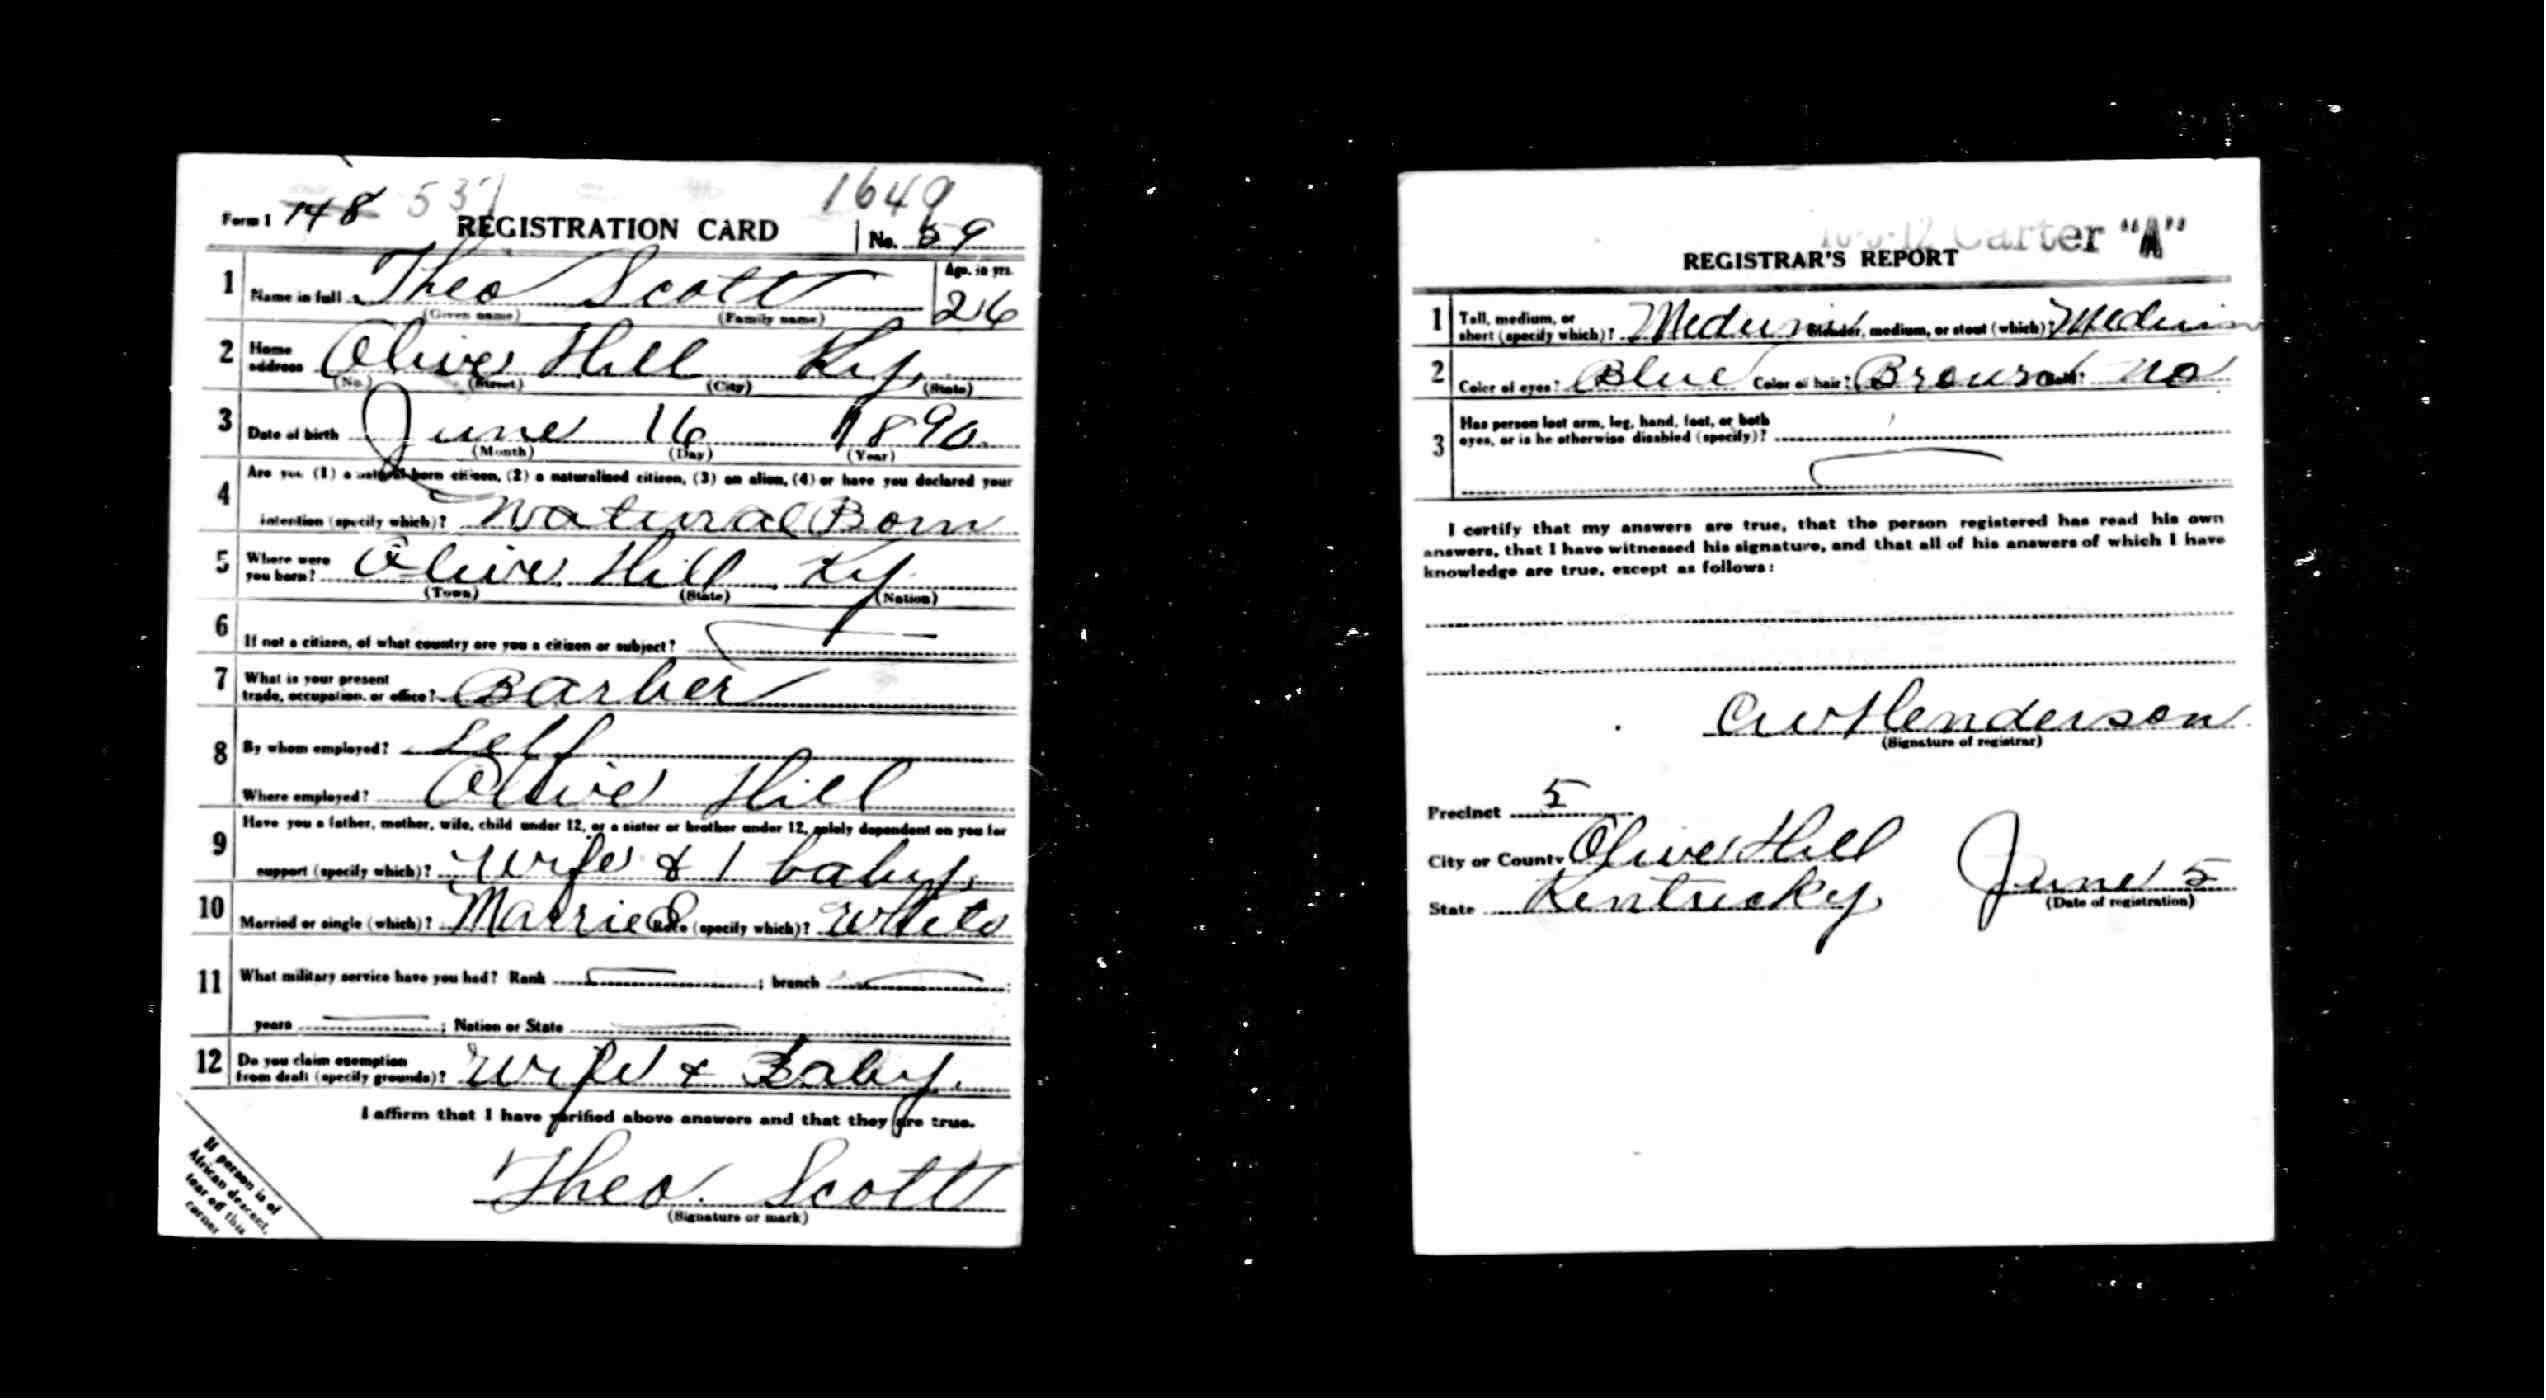 1649
Form 1 148 537 REGISTRATION CARD No. 59
1 Name in full Theo Scott Age, in yrs. 26
(Given name) (Family name)
2 Home address Olive Hill Ky.
(No.) (Street) (City) (State)
3 Date of birth June 16 1890
(Month) (Day) (Year)
4 Are you (1) a natural-born citizen, (2) a naturalized citizen, (3) an alien, (4) or have you declared your
intention (specify which)? Natural Born
5 Where were you born? Olive Hill, Ky
(Town) (State) (Nation)
6 If not a citizen, of what country are you a citizen or subject?
7 What is your present trade, occupation, or office? Barber
8 By whom employed? Self
Where employed? Olive Hill
9 Have you a father, mother, wife, child under 12, or a sister or brother under 12, solely dependent on you for
support (specify which)? Wife & 1 baby.
10 Married or single (which)? Married Race (specify which)? White
11 What military service have you had? Rank ; branch ;
years ; Nation or State
12 Do you claim exemption from draft (specify grounds)? Wife & Baby.
I affirm that I have verified above answers and that they are true.
Theo. Scott
(Signature or mark)
If person is of
African descent,
tear off this
corner
Carter "A"
REGISTRAR'S REPORT
1 Tall, medium, or short (specify which)? Medium Slender, medium, or stout (which)? Medium
2 Color of eyes? Blue Color of hair? Brown Bald? No
3 Has person lost arm, leg, hand, foot, or both
eyes, or is he otherwise disabled (specify)?
I certify that my answers are true, that the person registered has read his own
answers, that I have witnessed his signature, and that all of his answers of which I have
knowledge are true, except as follows:
CW Henderson
(Signature of registrar)
Precinct 5
City or County Olive Hill
State Kentucky. June 5
(Date of registration)